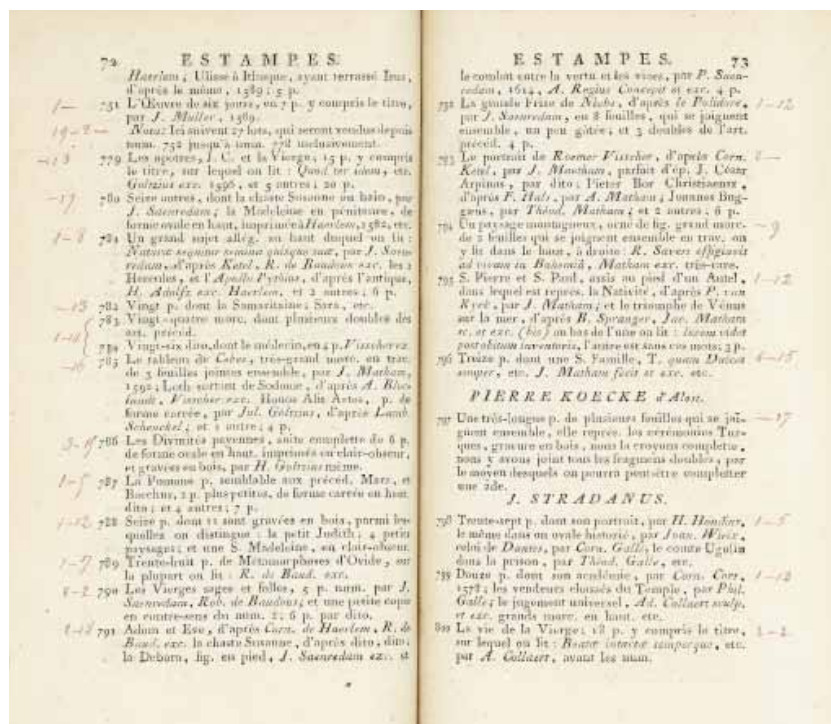 72 ESTAMPES.
Haerlem; Ulisse à Ithaque, ayant terrassé Irus,
d'après le même, 1589; 5 p.
751 L'Œuvre de six jours, en 7 p. y compris le titre,
par J. Muller, 1589.
Nota: Ici suivent 27 lots, qui seront vendus depuis
num. 752 jusqu'à num. 778 inclusivement.
779 Les apotres, J. C. et la Vierge; 15 p. y compris
le titre, sur lequel on lit: Quod ter idem, etc.
Goltzius exc. 1596, et 5 autres; 20 p.
780 Seize autres, dont la chaste Susanne au bain, par
J. Saenredam; la Madeleine en pénitence, de
forme ovale en haut, imprimée à Haerlem, 1582, etc.
781 Un grand sujet allég. au haut duquel on lit:
Natura sequitur semina quisque suae, par J. Saen-
redam, d'après Ketel, R. de Baudous exc. les 2
Hercules, et l'Apollo Pythius, d'après l'antique,
H. Adolfz exc. Haerlem, et 2 autres; 6 p.
782 Vingt p. dont la Samaritaine; Sara, etc.
783 Vingt-quatre morc. dont plusieurs doubles des
art. précéd.
784 Vingt-six dito, dont le médecin, en 4 p. Visscher ex.
785 Le tableau de Cebes, très-grand morc. en trav.
de 3 feuilles jointes ensemble, par J. Matham,
1592; Loth sortant de Sodome, d'après A. Bloe-
landt, Visscher exc. Honos Alit Artes, p. de
forme carrée, par Jul. Goltzius, d'après Lamb.
Schenckel; et 1 autre; 4 p.
786 Les Divinités payennes, suite complette de 6 p.
de forme ovale en haut, imprimés en clair-obscur,
et gravées en bois, par H. Goltzius même.
787 La Pomone p. semblable aux précéd. Mars, et
Bacchus, 2 p. plus petites, de forme carrée en haut,
dito; et 4 autres; 7 p.
788 Seize p. dont 11 sont gravées en bois, parmi les-
quelles on distingue: la petit Judith; 4 petits
paysages; et une S. Madeleine, en clair-obscur.
789 Trente-huit p. de Métamorphoses d'Ovide, sur
la plupart on lit: R. de Baud. exc.
790 Les Vierges sages et folles, 5 p. num. par J.
Saenredam, Rob. de Baudous; et une petite copie
en contre-sens du num. 2; 6 p. par dito.
791 Adam et Eve, d'après Corn. de Haerlem, R. de
Baud. exc. la chaste Susanne, d'après dito, dito;
la Debora, fig. en pied, J. Saenredam exc. et
ESTAMPES. 73
le combat entre la vertu et les vices, par P. Saen-
redam, 1614, A. Regius Concepit et exc. 4 p.
792 La grande Frize de Niobe, d'après le Polidore,
par J. Saenredam, en 8 feuilles, qui se joignent
ensemble, un peu gâtée; et 3 doubles de l'art.
précéd. 4 p.
793 Le portrait de Roemer Visscher, d'après Corn.
Ketel, par J. Maetham, parfait d'ép. J. César
Arpinas, par dito; Pieter Bor Christiaensz,
d'après F. Hals, par A. Matham; Joannes Bog-
gaeus, par Théod. Matham; et 2 autres; 6 p.
794 Un paysage montagneux, orné de fig. grand morc.
de 2 feuilles qui se joignent ensemble en trav. on
y lit dans le haut, à droite: R. Savery effigiavit
ad vivum in Bohemiâ, Matham exc. très-rare.
795 S. Pierre et S. Paul, assis au pied d'un Autel,
dans lequel est représ. la Natività, d'après P. van
Ryck, par J. Matham; et le triomphe de Vénus
sur la mer, d'après B. Spranger, Jac. Matham
sc. et exc. (bis) au bas de l'une on lit: lucem videt
post obitum inventoris, l'autre est sans ces mots; 3 p.
796 Treize p. dont une S. Famille, T. quam Dulces
semper, etc. J. Matham fecit et exc. etc.
PIERRE KOECKE d'Alost.
797 Une très-longue p. de plusieurs feuilles qui se joi-
gnent ensemble, elle représ. les cérémonies Tur-
ques, gravure en bois, nous la croyons complette,
nous y avons joint tous les fragmens doubles, par
le moyen desquels on pourra peut-être completter
une 2de.
J. STRADANUS.
798 Trente-sept p. dont son portrait, par H. Hondius,
le même dans un ovale historié, par Joan. Wirix,
celui de Dantes, par Corn. Galle, le comte Ugulin
dans la prison, par Théod. Galle, etc.
799 Douze p. dont son académie, par Corn. Cort,
1578; les vendeurs chassés du Temple, par Phil.
Galle; le jugement universel, Ad. Collaert sculp.
et exc. grands morc. en haut, etc.
800 La vie de la Vierge; 18 p. y compris le titre,
sur lequel on lit: Beatae intactae semperque, etc.
par A. Collaert, avant les num.